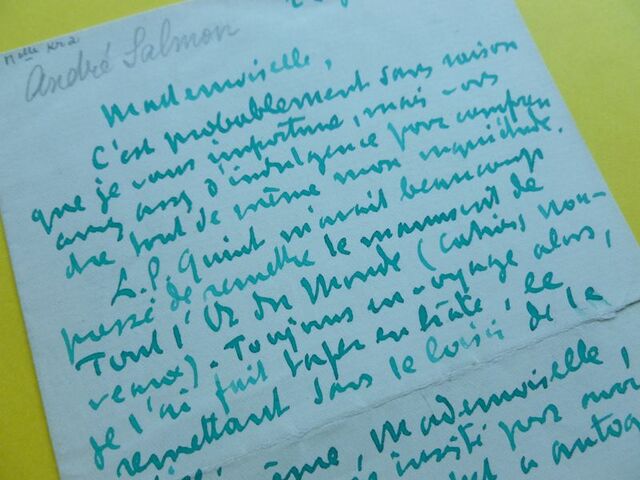 Melle Kra
André Salmon
Mademoiselle,
C'est probablement sans raison
que je vous importune, mais vous
avez assez d'indulgence pour compren
dre tout de même mon inquiétude.
L.P. Quint m'avait beaucoup
pressé de remettre le manuscrit de
Tout l'Or du Monde (Cahiers nou-
veaux). Toujours en voyage alors,
je l'ai fait taper en hâte, le
remettant sans le loisir de le
même, Mademoiselle,
insisté pour avoir
autog